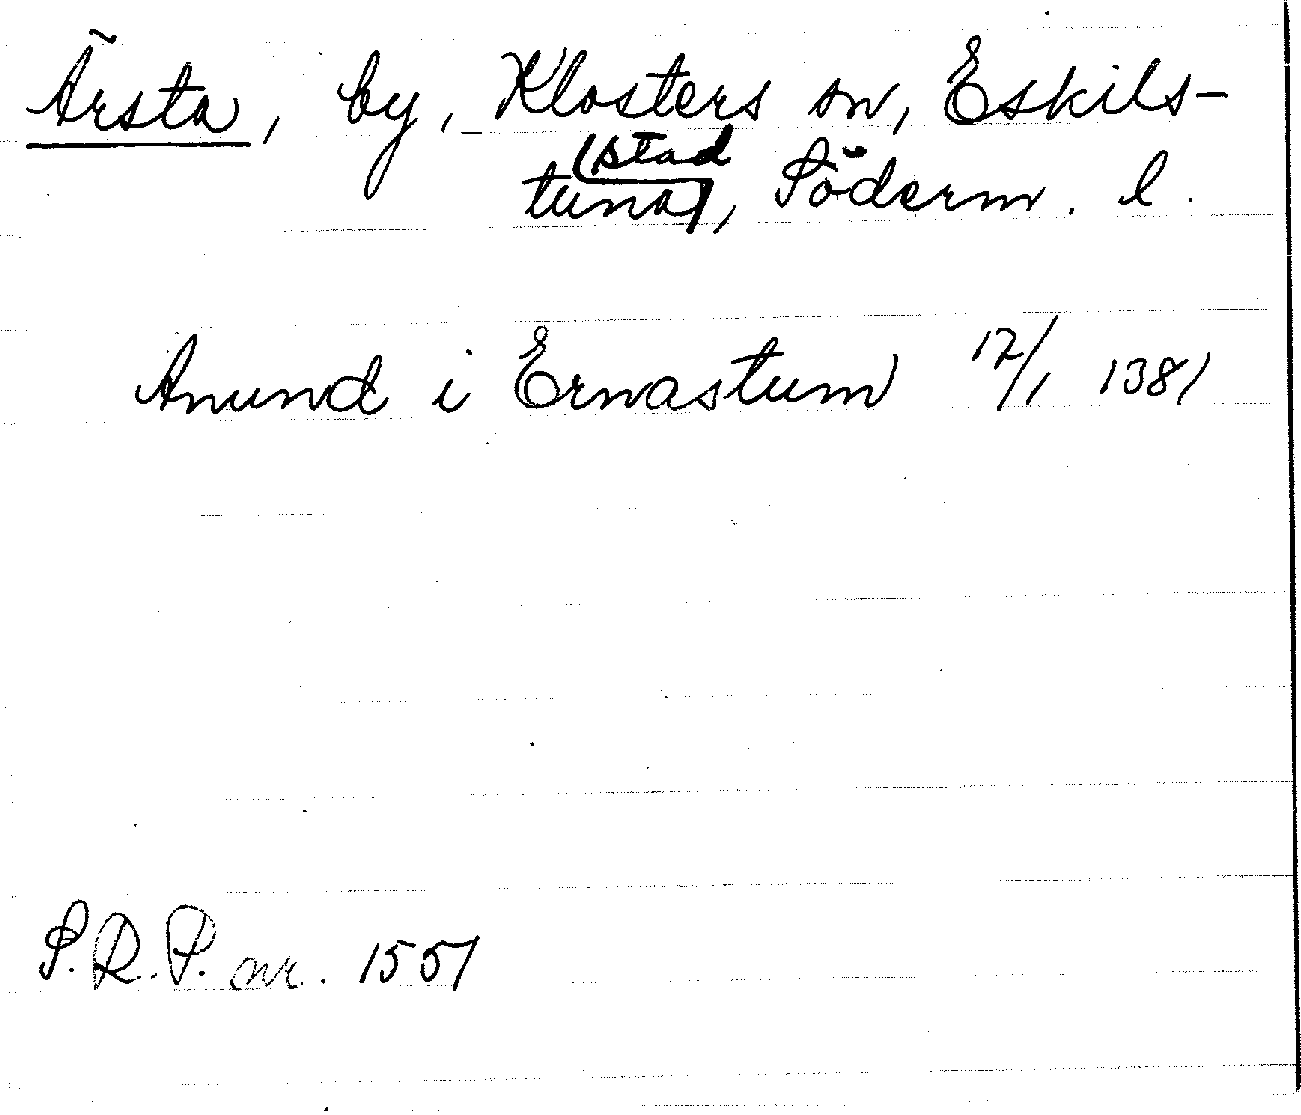 Ärsta, by, Klosters sn, Eskils-
(stad
tuna), Söderm. l.
Anund i Ernastum 12/1 1381
S.R.P. nr. 1551